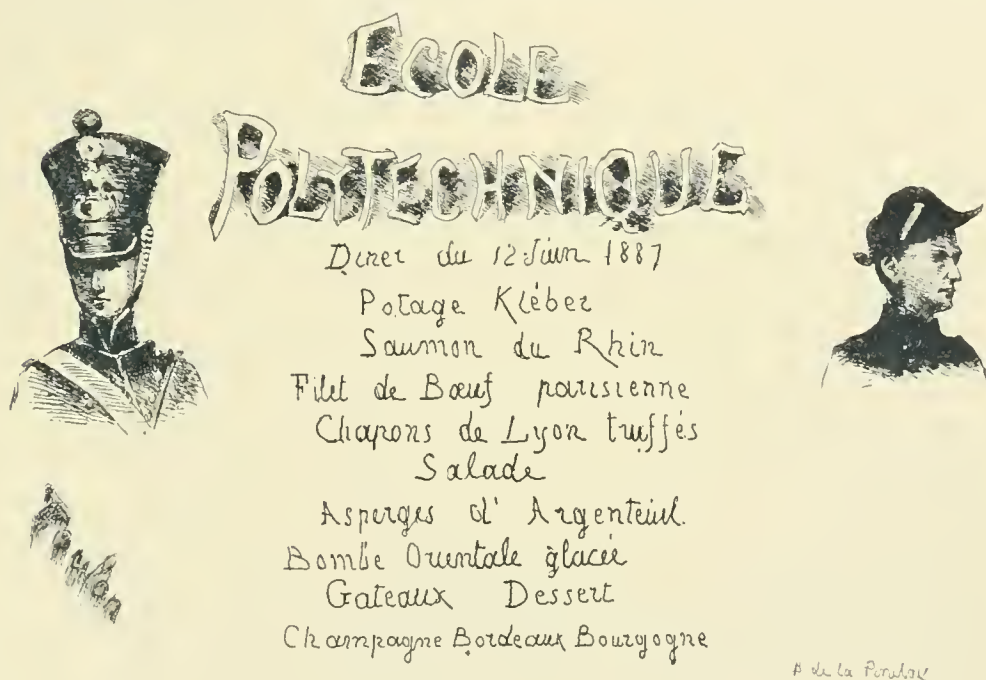 ECOLE
POLYTECHNIQUE
Diner du 12 Juin 1887
Potage Kléber
Saumon du Rhin
Filet de Bœuf parisienne
Chapons de Lyon truffés
Salade
Asperges d'Argenteuil.
Bombe Orientale glacée
Gateaux Dessert
Champagne Bordeaux Bourgogne
de la